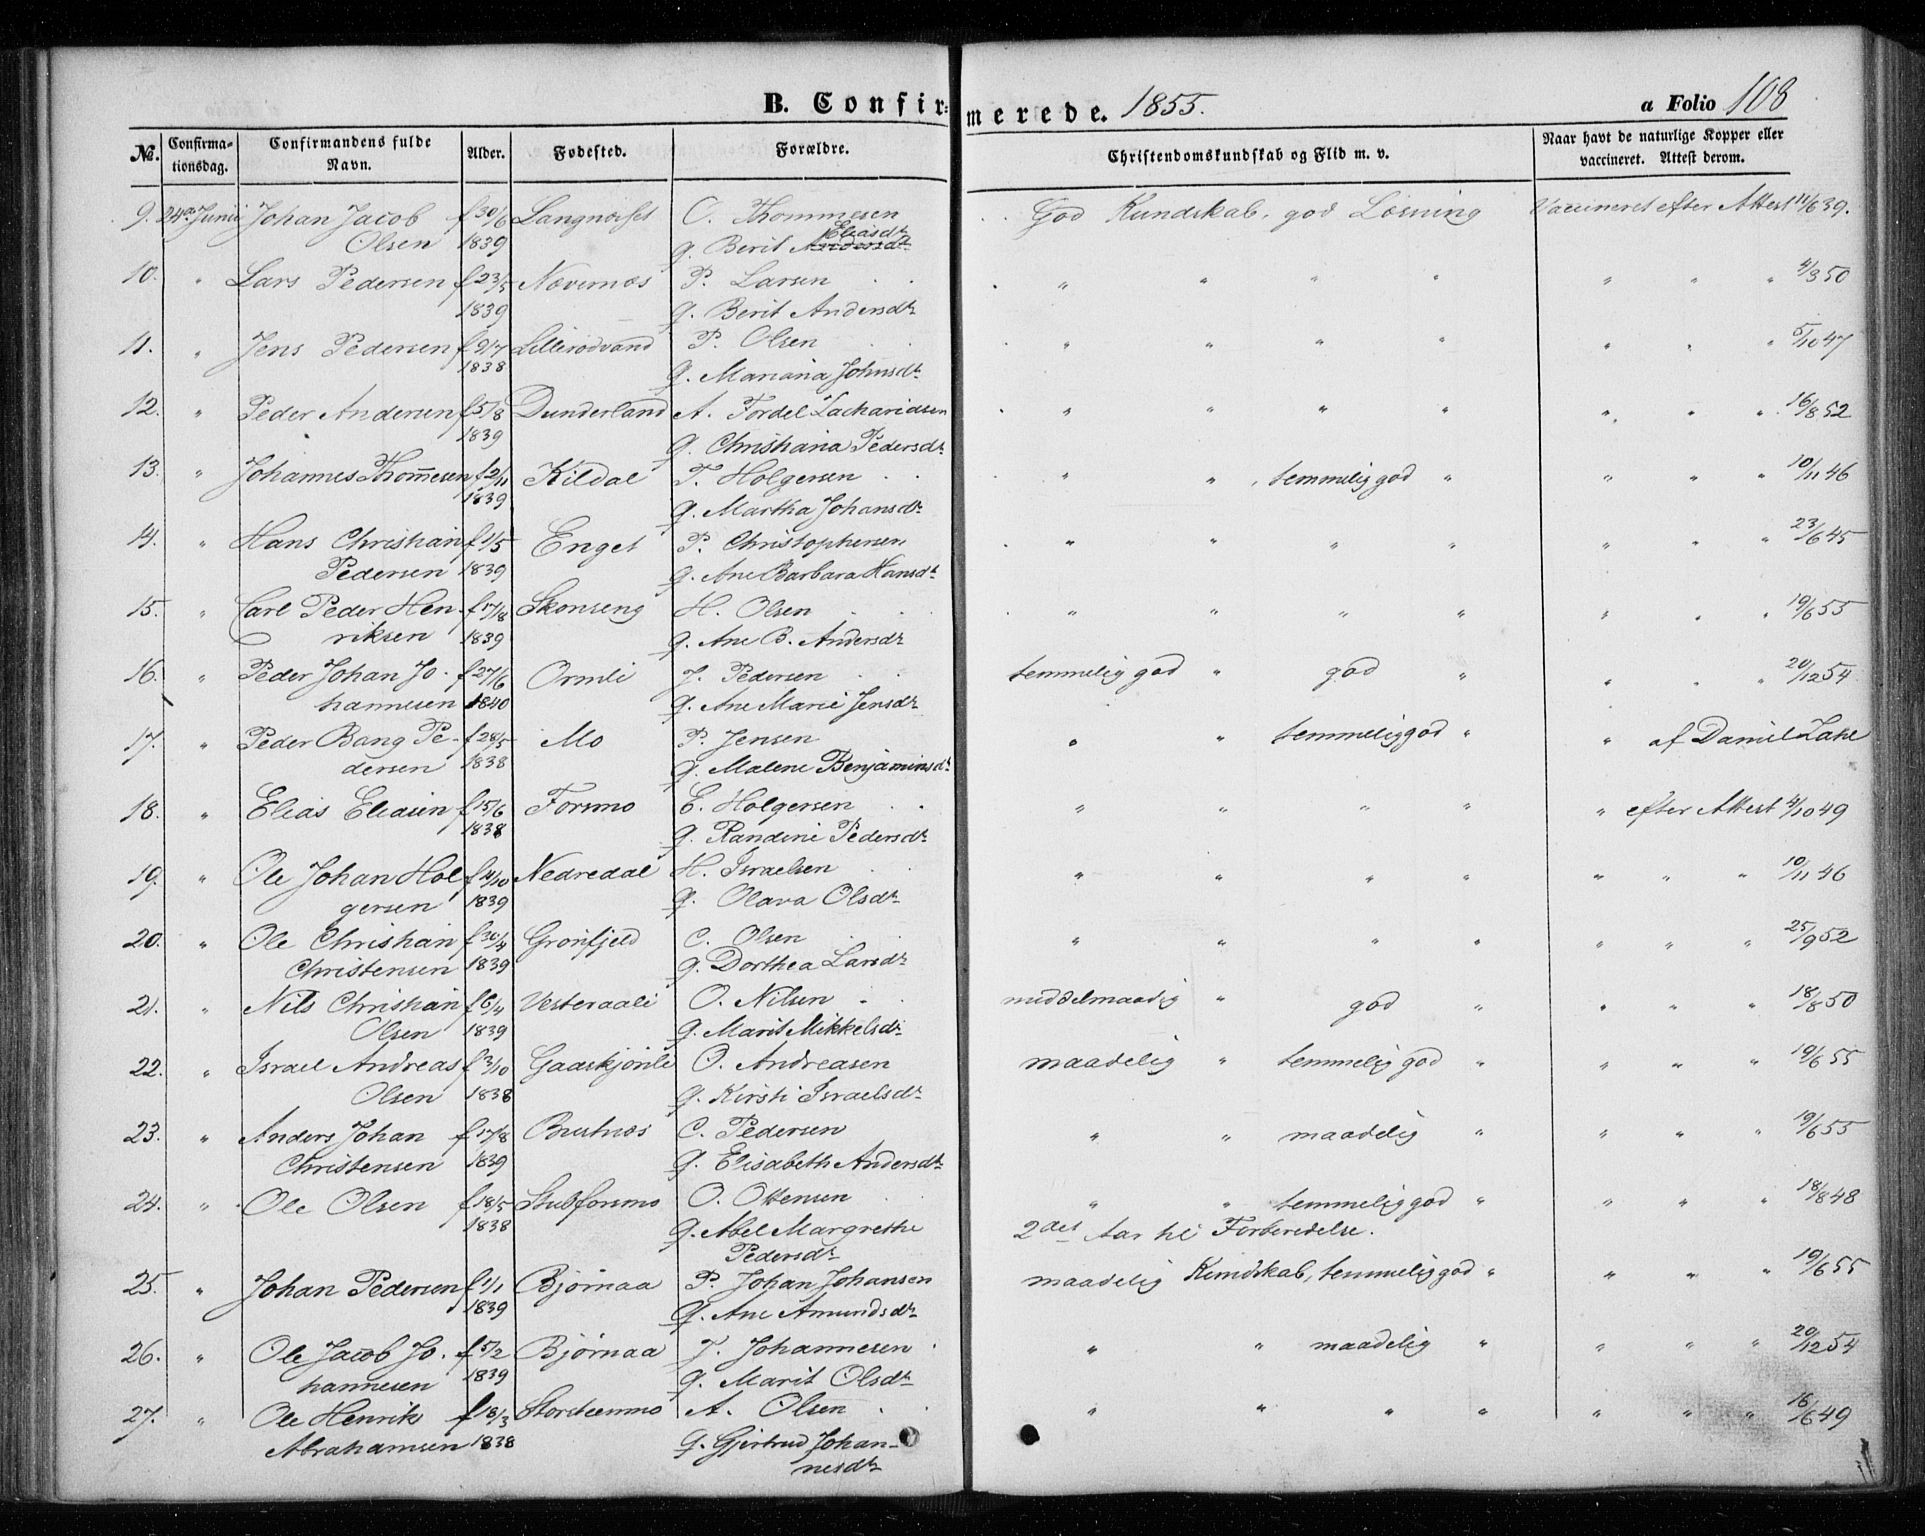 B. Confirmerede. 1855. a Folio 108
No. Confirmationsdag. Confirmandens fulde Navn. Alder. Fødested. Forældre. Christendomskundskab og Flid m. v. Naar havt de naturlige Kopper eller vaccineret. Attest derom.
9. 24de Junii Johan Jacob f 30/6 Langnæsset O. Thommesen God Kundskab, god Læsning Vaccineret efter Attest 11/6 39.
Olsen 1839 g. Berit Andersdr Eliasdr
10. " Lars Pedersen f 23/5 Nævernæs P. Larsen " " " " " " " 4/3 50
1839 g. Berit Andersdr
11. " Jens Pedersen f 9/7 Lillerødvand P. Olsen " " " " " " " 5/10 47
1838 g. Mariana Johnsdr
12. " Peder Andersen f 5/8 Dunderland A. Tordel Zachariasen " " " " " " " 16/8 52
1839 g. Christiana Pedersdr
13. " Johannes Thomesen f 2/11 Kildal T. Holgersen " " , temmelig god " " " " 10/11 46
1839 g. Martha Johansdr
14. " Hans Christian f 1/5 Enget P. Christophersen " " " " " " " 23/6 45
Pedersen 1839 g. Ane Barbara Hansdr
15. " Carl Peder Hen- f 17/8 Skonseng H. Olsen " " " " " " " 19/6 55
riksen 1839 g. Ane B. Andersdr
16. " Peder Johan Jo- f 27/6 Ormli J. Pedersen temmelig god " god " " " " 20/12 54
hannesen 1840 g. Ane Marie Jensdr
17. " Peder Bang Pe- f 28/5 Mo P. Jensen " " temmelig god " " af Daniel Zahl
dersen 1838 g. Malene Benjaminsdr
18. " Elias Eliasen f 15/6 Forsmo E. Holgersen " " " " " efter Attest 4/10 49
1838 g. Randine Pedersdr
19. " Ole Johan Hol f 4/10 Nedredal H. Israelsen " " " " " " " 10/11 46
gersen 1839 g. Olava Olsdr
20. " Ole Christian f 30/4 Grønfjeld C. Olsen " " " " " " " 25/9 52
Christensen 1839 g. Dorthea Larsdr
21. " Nils Christian f 6/4 Vesteraali O. Nilsen middelmaadig " god " " " " 18/8 50
Olsen 1839 g. Marit Mikkelsdr
22. " Israel Andreas f 3/10 Gaaskjønli O. Andreasen maadelig " temmelig god " " " " 19/6 55
Olsen 1838 g. Kirsti Israelsdr
23. " Anders Johan f 17/8 Bustnæs C. Pedersen " " maadelig " " " " 19/6 55
Christensen 1839 g. Elisabeth Andersdr
24. " Ole Olsen f 18/5 Stubforsmo O. Ottensen " " temmelig god " " " " 18/8 48
1838 g. Abel Margrethe 2det Aar til Forberedelse.
Pedersdr
25. " Johan Pedersen f 1/1 Bjørnaa P. Johan Johansen maadelig Kundskab, temmelig god " " " " 19/6 55
1839 g. Ane Amundsdr
26. " Ole Jacob Jo- f 5/2 Bjørnaa J. Johannesen " " maadelig " " " " 20/12 54
hannesen 1839 g. Marit Olsdr
27. " Ole Henrik f 18/3 A. Olsen " " " " " " " 16/6 49
Abrahamsen 1838 g. Gjertrud Johan-
nesdr